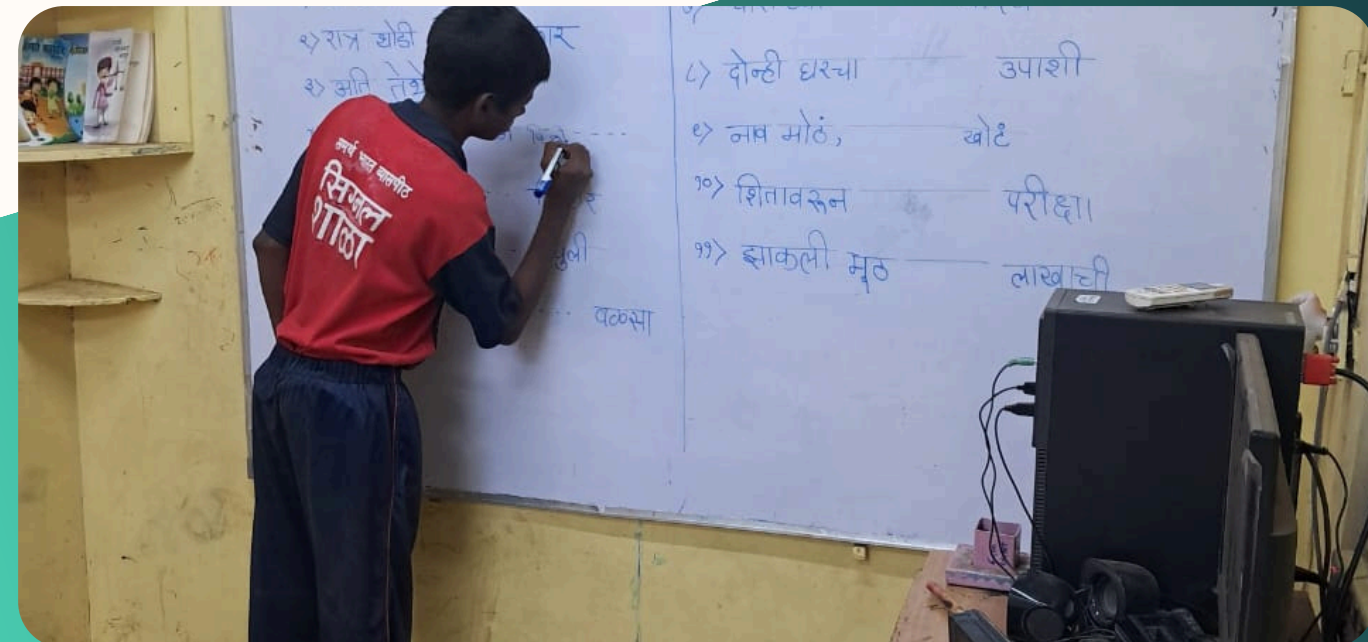 २) रात्र थोडी
३) अति तेथे
वळसा
८) दोन्ही घरचा ------ उपाशी
९) नाव मोठं, ------ खोटं
१०) शितावरून ------ परीक्षा
११) झाकली मूठ ------ लाखाची
समर्थ भारत व्यासपीठ
सिग्नल
शाळा